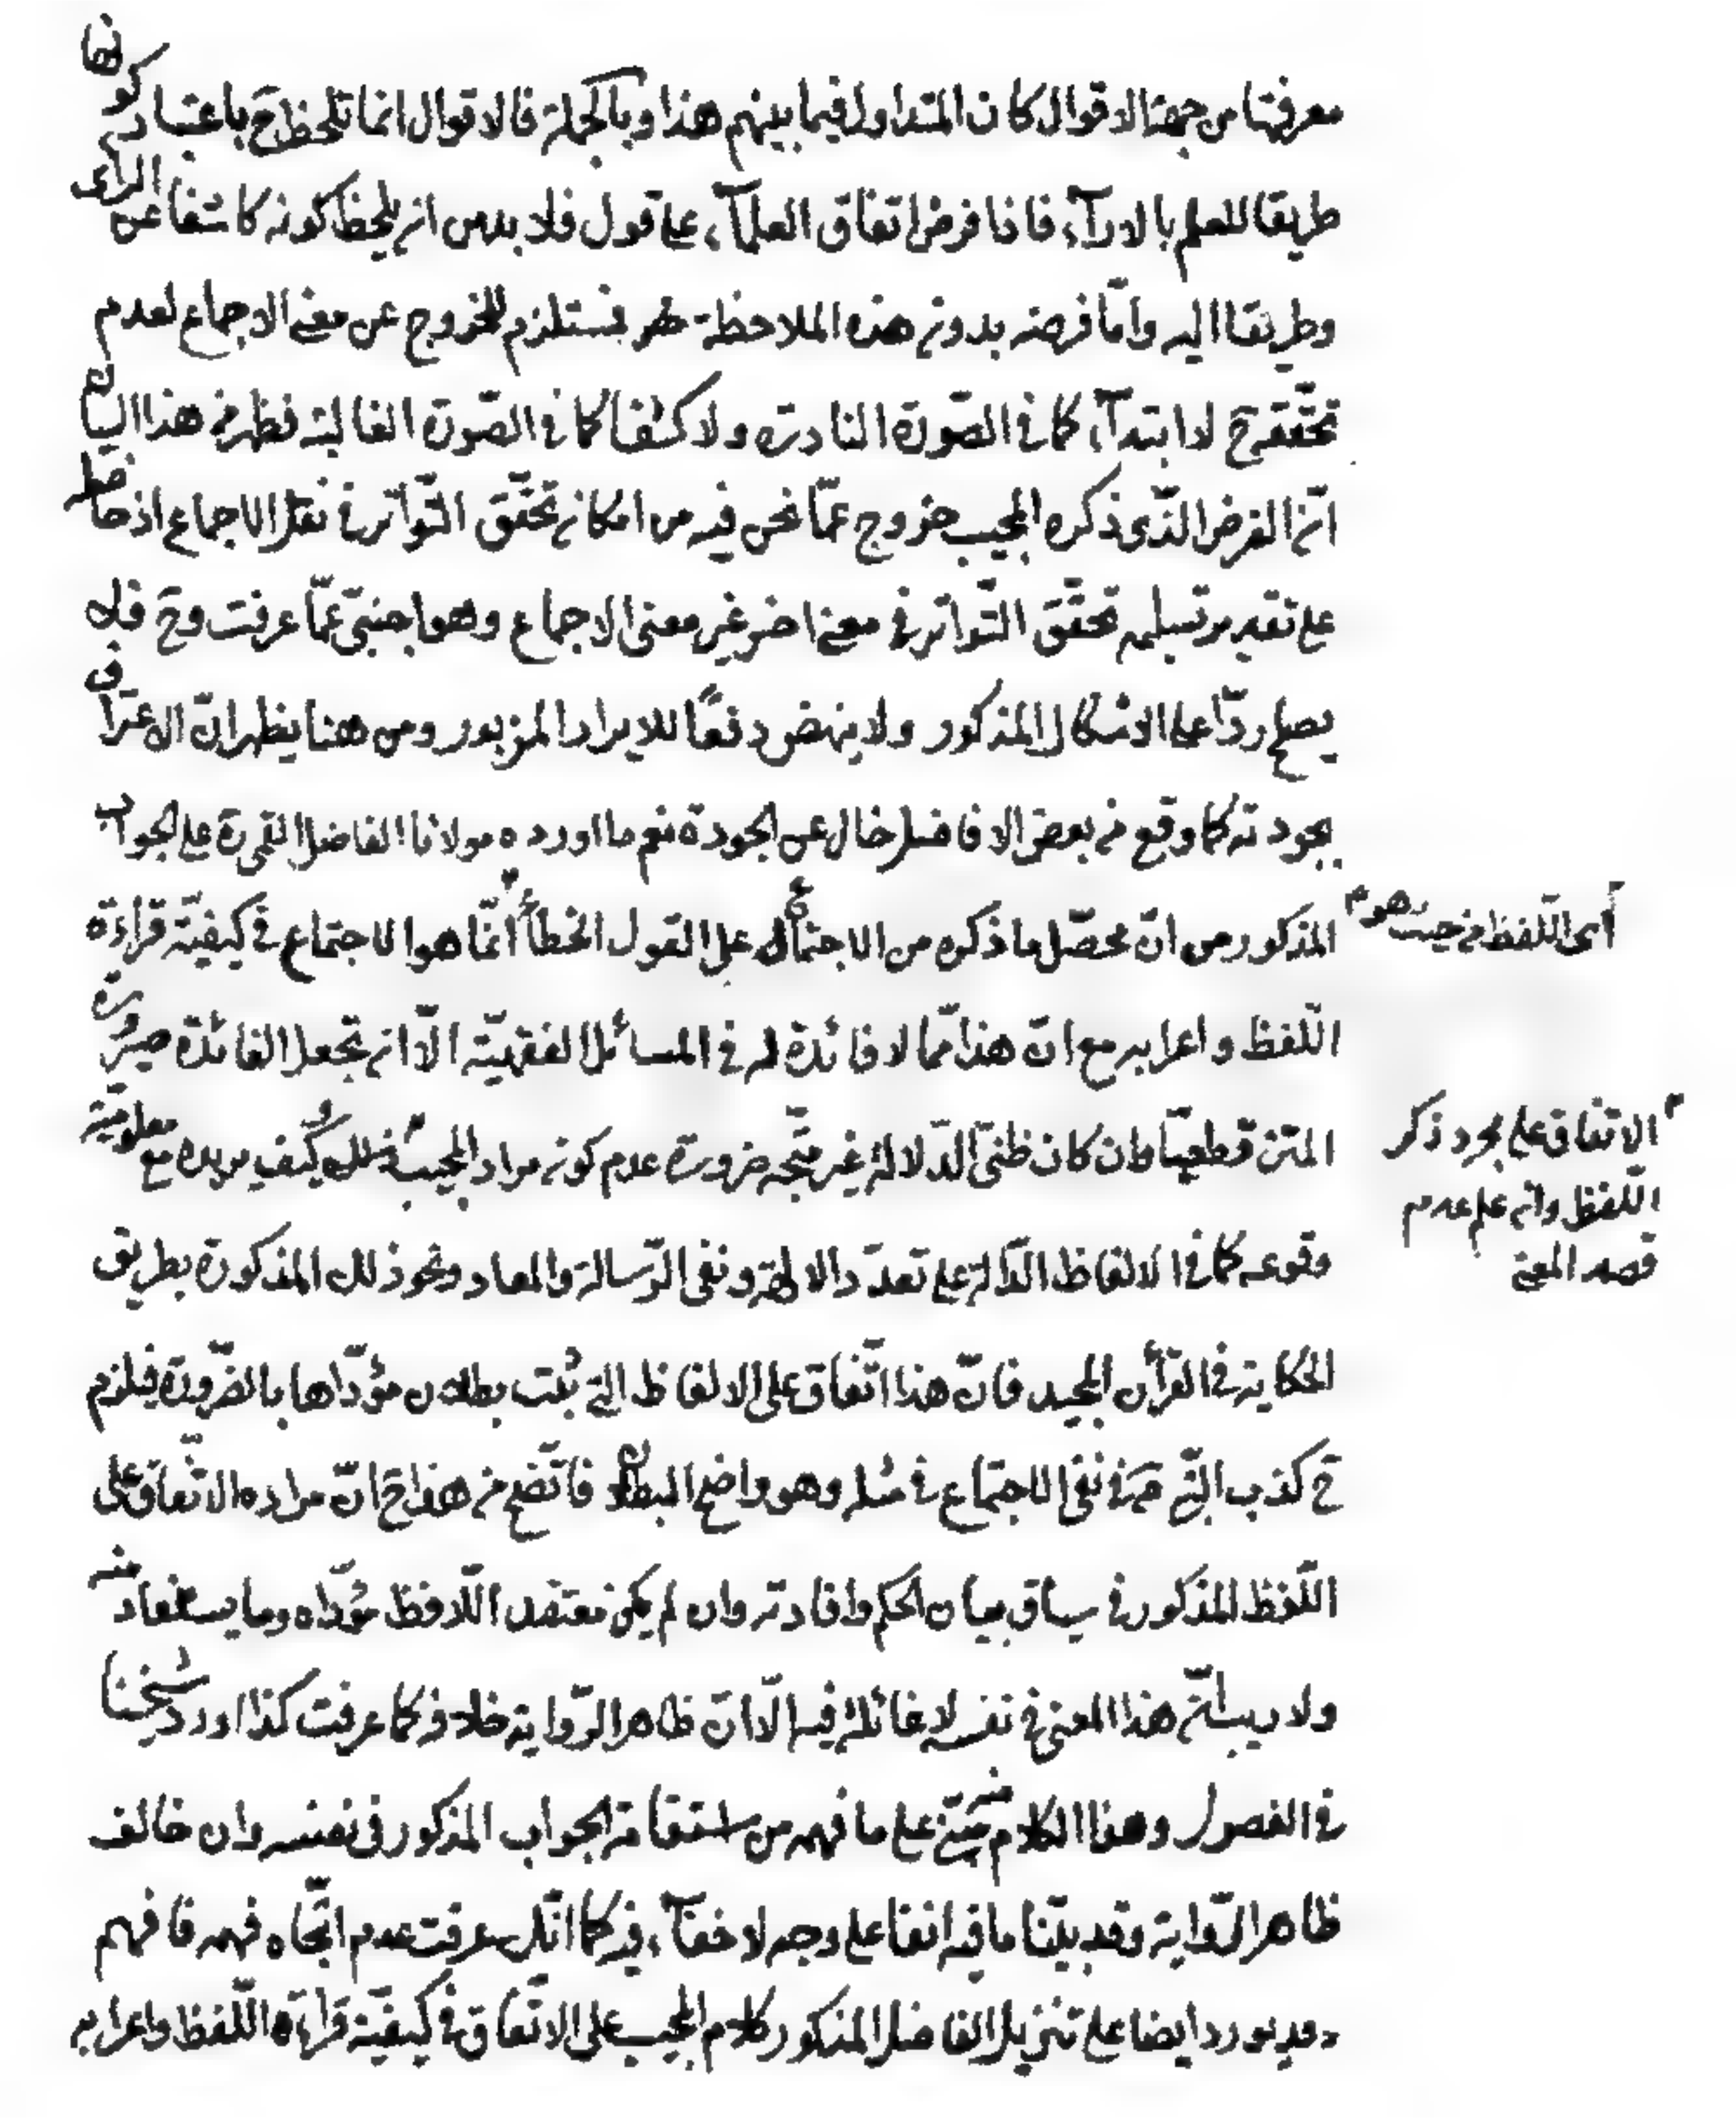 معرفتها من جهة الاقوال كان المتداول فيما بينهم هذا وبالجملة فالاقوال انما تلحظ ح باعتبار كونها
طريقا للعلم بالارآء، فاذا فرض اتفاق العلمآء، على قول فلا بد من ان يلحظ كونه كاشفا عن الراى
وطريقا اليه وامّا فرضه بدون هذه الملاحظة فهو يستلزم للخروج عن معنى الاجماع لعدم
تحقّقه ح لا ابتدآء، كما فى الصّورة النادرة ولا كشفا كما فى الصّورة الغالبة فظهر من هذا البيان
انّ الفرض الذّى ذكره المجيب خروج عمّا نحن فيه من امكان تحقّق التّواتر فى نقل الاجماع اذ حاصله
على تقدير تسليمه تحقّق التّواتر فى معنى اخر غير معنى الاجماع وهو اجنبىّ عمّا عرفت وح فلا
يصلح ردّا على الاشكال المذكور ولا ينهض دفعًا للايراد المزبور ومن هنا يظهر انّ الاعتراف
بجودته كما وقع من بعض الافاضل خال عن الجودة نعم ما اورده مولانا الفاضل القمى ره على الجواب
المذكور من انّ محصّل ما ذكره من الاجتماع على القول الخطأ انّما هو الاجتماع فى كيفيّة قراءة
اى اللّفظ من حيث هو م
اللّفظ واعرابه مع انّ هذا ممّا لا فائدة له فى المسائل الفقهيّة الّا ان تجعل الفائدة صيرورة
المتن قطعيّا وان كان ظنىّ الدّلالة غير متّجه ضرورة عدم كونه مراد المجيب كيف يريده مع معلوميّة
الاتفاق على مجرد ذكر
اللّفظ وان علم عدم
قصد المعنى
وقوعه كما فى الالفاظ الدّالة على تعدّد الالهة ونفى الرّسالة والمعاد ونحو ذلك المذكورة بطريق
الحكاية فى القرأن المجيد فانّ هذا اتّفاق على الالفاظ التى ثبت بطلان مؤدّاها بالضّرورة فيلزم
ح كذب النّبى ص فى نفى الاجتماع فى مثله وهو واضح البطلان فاتّضح من هذا ح انّ مراده الاتّفاق على
اللّفظ المذكور فى سياق بيان الحكم وافادته وان لم يكن معتقد اللّافظ مؤدّاه وما يستفاد منه
ولا ريب انّ هذا المعنى فى نفسه لا غائلة فيه الّا انّ ظاهر الرّواية خلافه كما عرفت كذا اورد شيخنا
فى الفصول وهذا الكلام منه مبنىّ على ما فهمه من استقامة الجواب المذكور فى نفسه وان خالف
ظاهر الرّواية وقد بيّنا ما فيه انفا على وجه لا خفآء، فيه كما انّك عرفت عدم اتّجاه فهمه فافهم
وقد يورد ايضا على تنزيل الفاضل المذكور كلام المجيب على الاتّفاق فى كيفيّة قراءة اللّفظ واعرابه